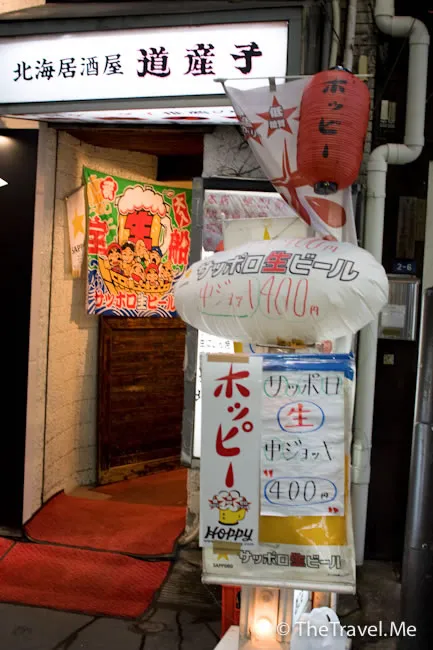 北海居酒屋 道産子
ホッピー
生
宝船
サッポロ生ビール
SAPPORO
サッポロ生ビール
中ジョッキ400円
ホッピー
HOPPY
サッポロ
生
中ジョッキ
400円
サッポロ生ビール
SAPPORO
2-6
© TheTravel.Me